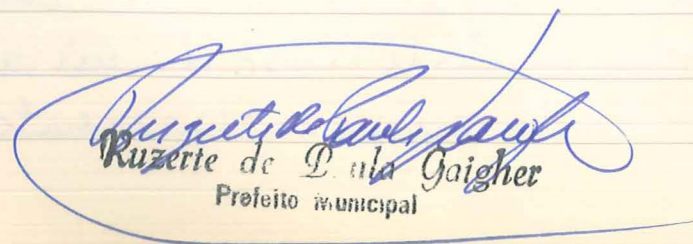 Ruzerte de Paula Gaigher
Prefeito Municipal